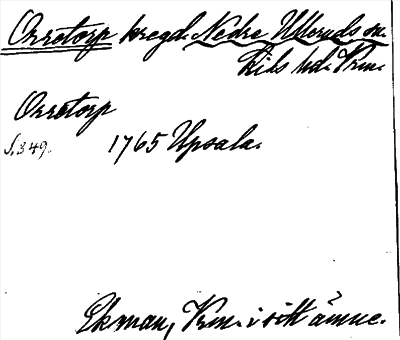 Orretorp kregd. Nedre Ulleruds sn.
Kils hd. Vrm.
Orretorp
S. 349. 1765 Upsala.
Ekman, Vrm. i sitt ämne.